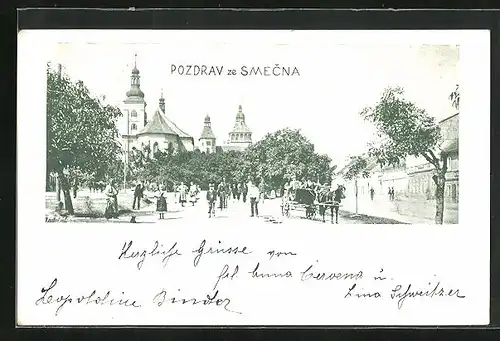 POZDRAV ze SMEČNA
Herzliche Grüsse von
Anna Červena u.
Leopoldine Binder
Lina Schweitzer